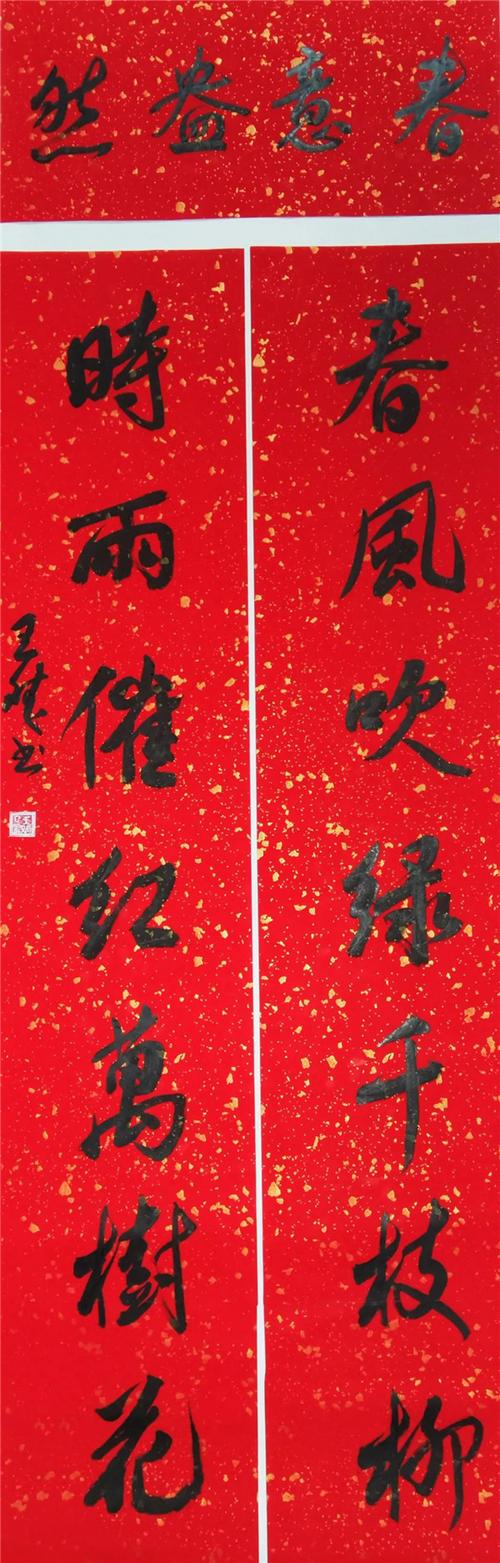 春意盎然
春風吹綠千枝柳
時雨催紅萬樹花